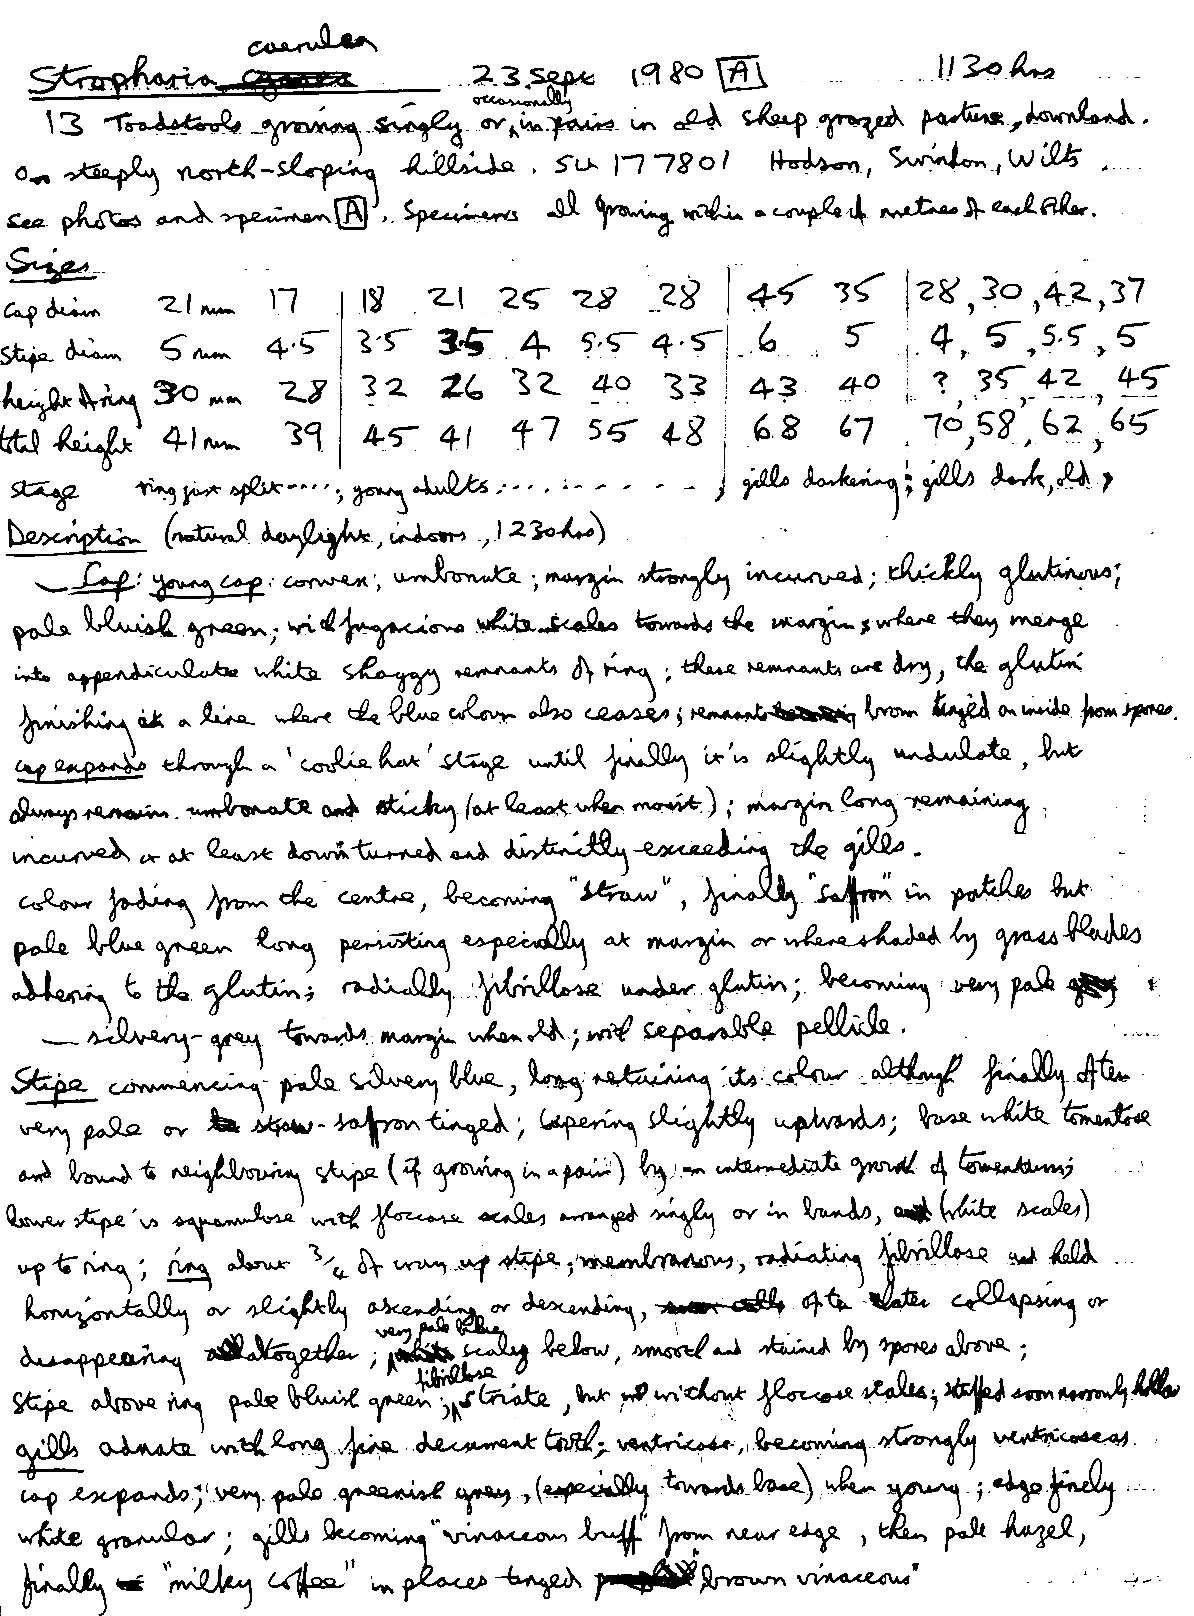 caerulea
Stropharia 23 Sept 1980 A 1130hrs
13 Toadstools growing singly or occasionally in pairs in old sheep grazed pasture, downland.
On steeply north-sloping hillside. SU 177801 Hodson, Swindon, Wilts.
see photos and specimen A. Specimens all growing within a couple of metres of each other.
Sizes
cap diam 21mm 17 18 21 25 28 28 45 35 28, 30, 42, 37
Stipe diam 5mm 4.5 3.5 3.5 4 5.5 4.5 6 5 4, 5, 5.5, 5
height of ring 30mm 28 32 26 32 40 33 43 40 ?, 35, 42, 45
total height 41mm 39 45 41 47 55 48 68 67 70, 58, 62, 65
stage ring just split....; young adults..........; gills darkening; gills dark, old,
Description (natural daylight, indoors, 1230hrs)
Cap: young cap: convex; umbonate; margin strongly incurved; thickly glutinous;
pale bluish green; with fugacious white scales towards the margin, where they merge
into appendiculate white shaggy remnants of ring; these remnants are dry, the glutin
finishing at a line where the blue colour also ceases; remnants brown tinged on inside from spores.
cap expands through a 'coolie hat' stage until finally it is slightly undulate, but
always remains umbonate and sticky (at least when moist); margin long remaining
incurved or at least down turned and distinctly exceeding the gills.
colour fading from the centre, becoming "straw", finally "saffron" in patches but
pale blue green long persisting especially at margin or where shaded by grass blades
adhering to the glutin; radially fibrillose under glutin; becoming very pale
— silvery-grey towards margin when old; with separable pellicle.
Stipe commencing pale silvery blue, long retaining its colour although finally often
very pale or straw-saffron tinged; tapering slightly upwards; base white tomentose
and bound to neighbouring stipe (if growing in a pair) by an intermediate growth of tomentum;
lower stipe is squamulose with floccose scales arranged singly or in bands, (white scales)
up to ring; ring about 3/4 of way up stipe; membranous, radiating fibrillose and held
horizontally or slightly ascending or descending, often later collapsing or
disappearing altogether; very pale blue scaley below, smooth and stained by spores above;
Stipe above ring pale bluish green; fibrillose striate, but without floccose scales; stuffed soon narrowly hollow
gills adnate with long fine decurrent tooth; ventricose, becoming strongly ventricose as
cap expands; very pale greenish grey, (especially towards base) when young; edge finely
white granular; gills becoming "vinaceous buff" from near edge, then pale hazel,
finally "milky coffee" in places tinged "brown vinaceous"